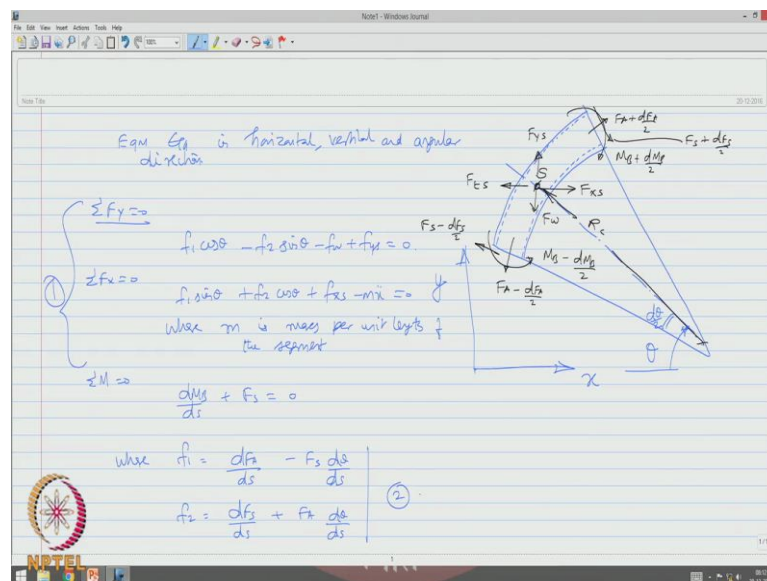 Note1 - Windows Journal
File Edit View Insert Actions Tools Help
Note Title
20-12-2016
Eqm Eq in horizontal, vertical and angular
direction
ΣFy = 0
f1 cosθ - f2 sinθ - fw + fys = 0.
① ΣFx = 0
f1 sinθ + f2 cosθ + fxs - mẍ = 0
where m is mass per unit length of
the segment
ΣM = 0
dMB/ds + Fs = 0
where f1 = dFA/ds - Fs dθ/ds
f2 = dFs/ds + FA dθ/ds
②
FA + dFA/2
Fs + dFs/2
MB + dMB/2
Fys
S
Fts
Fxs
Fw
Rc
Fs - dFs/2
MB - dMB/2
FA - dFA/2
y
dθ/2
θ
x
NPTEL
1
1/1